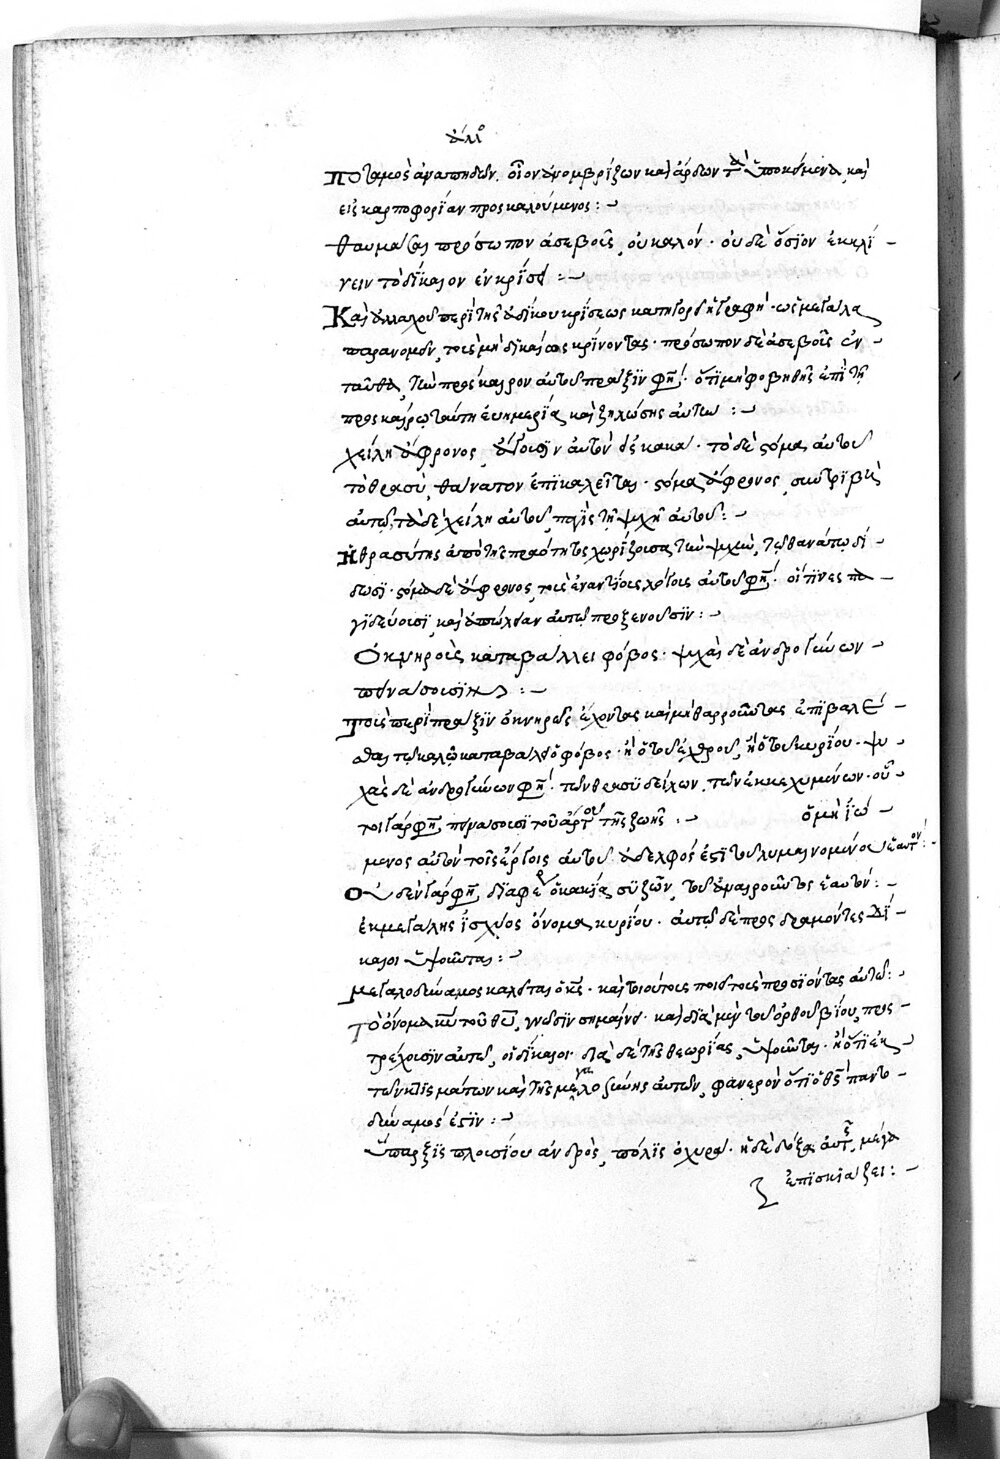 ἄλλο
ποταμὸς ἀναπηδῶν. οἱονεὶ ὀμβρίζων καὶ ἄρδων τὰ ὑποκείμενα, καὶ
εἰς καρποφορίαν προσκαλούμενος :~
θαυμάσαι πρόσωπον ἀσεβοῦς, οὐ καλόν · οὐδὲ ὅσϊον ἐκκλί
νειν τὸ δίκαιον ἐν κρίσει :~
Καὶ ἀλλαχοῦ περὶ τῆς ἀδίκου κρίσεως κατηγορεῖ ἡ γραφή · ὡς μεγάλα
παρανομεῖν, τοὺς μὴ δικαίως κρίνοντας · πρόσωπον δὲ ἀσεβοῦς ἐν
ταῦθα, τὴν πρόσκαιρον αὐτοῦ πρᾶξϊν φησί · ὅτι μὴ φοβηθῆς ἐπὶ τῇ
προσκαίρω ταύτη εὐημερία, καὶ ζηλώσης αὐτῶ :~
χείλη ἄφρονος, ἄγουσϊν αὐτὸν εἰς κακά · τὸ δὲ στόμα αὐτοῦ
τὸ θρασὺ, θάνατον ἐπϊκαλεῖται · στόμα ἄφρονος, συντρϊβὴ
αὐτῶ, τὰ δὲ χείλη αὐτοῦ, παγὶς τῇ ψυχῇ αὐτοῦ :~
Ἡ θρασύτης ἀπὸ τῆς πραότητος χωρίζουσα τὴν ψυχὴν, τῷ θανάτῳ δί
δωσϊ · στόμα δὲ ἄφρονος, τοὺς ἐναντίους λόγους αὐτοῦ φησί · οἵτϊνες πα
γϊδεύουσι, καὶ ἀπώλειαν αὐτῷ προξενοῦσϊν :~
Ὀκνηροὺς καταβάλλει φόβος · ψυχαὶ δὲ ἀνδρογύνων
πεινάσουσϊν :~
Τοὺς περὶ πρᾶξϊν ὀκνηρῶς ἔχοντας καὶ μὴ θαρροῦντας ἐπϊβαλέ
σθαι τῷ καλῷ καταβάλλει ὁ φόβος · ἢ ὁ τοῦ ἐχθροῦ, ἢ ὁ τοῦ κυρίου · ψυ
χὰς δὲ ἀνδρογύνων φησί · τῶν θρασϋδείλων, τῶν ἐκκεχυμένων · οὗ
τοι γάρ φησι, πεινάσουσι τοῦ ἄρτου τῆς ζωῆς :~ ὁ μὴ ἰώ
μενος αὐτὸν τοῖς ἔργοις αὐτοῦ ἀδελφός ἐστι τοῦ λυμαινομένου ἑαυτόν :~
Οὐδὲν γάρ φησι, διαφέρει ὁ κακία συζῶν, τοῦ ἀναιροῦντος ἑαυτόν :~
ἐκ μεγάλης ἰσχύος ὄνομα κυρίου · αὐτῷ δὲ προσδραμόντες δί
καιοι ὑψοῦνται :~
Μεγαλοδύναμος καλεῖται ὁ κς · καὶ τοιούτους ποιεῖ τοὺς προσϊόντας αὐτῷ :
Τὸ ὄνομα κυ τοῦ θυ, γνῶσϊν σημαίνει · καὶ διὰ μὲν τοῦ ὀρθοῦ βίου, προσ
τρέχουσϊν αὐτῷ, οἱ δίκαιοι · διὰ δὲ τῆς θεωρίας, ὑψοῦνται · ἢ ὅτϊ ἐκ
τῶν κτισμάτων καὶ τῆς μεγαλοσύνης αὐτῶν, φανερὸν ὅτϊ ὁ θς παντο
δύναμός ἐστϊν :~
ὕπαρξϊς πλουσίου ἀνδρὸς, πόλϊς ὀχυρά · ἡ δὲ δόξα αὐτῆς, μέγα
ἐπϊσκιάζει :~